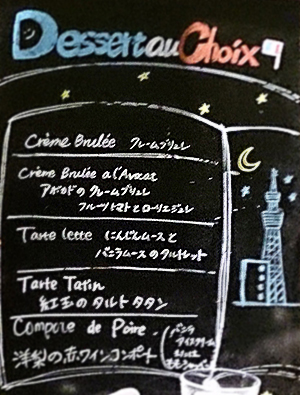 Dessert au Choix
Crème Brulée クレームブリュレ
Crème Brulée a l'Avocat
アボカドのクレームブリュレ
フルーツトマトとローリエジュレ
Tarte lette にんじんムースと
バニラムースのタルトレット
Tarte Tatin
紅玉のタルトタタン
Compote de Poire.
洋梨の赤ワインコンポート
バニラ
アイスクリーム